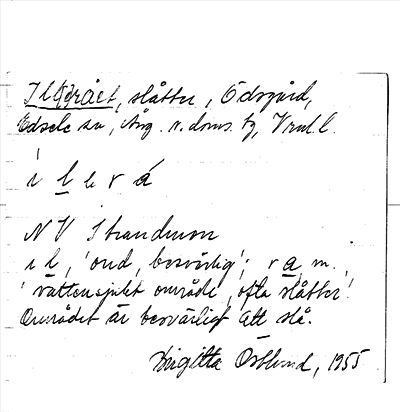 Il(e)rået, slåtter, Ödsgård,
Edsele sn, Ång. v. doms. tg, Vrnl l.
i l e r á
NV Strandmon
il, 'ond, besvärlig'; ra, m.,
'vattensjukt område, ofta slåtter'.
Området är besvärligt att slå.
Birgitta Östlund, 1955